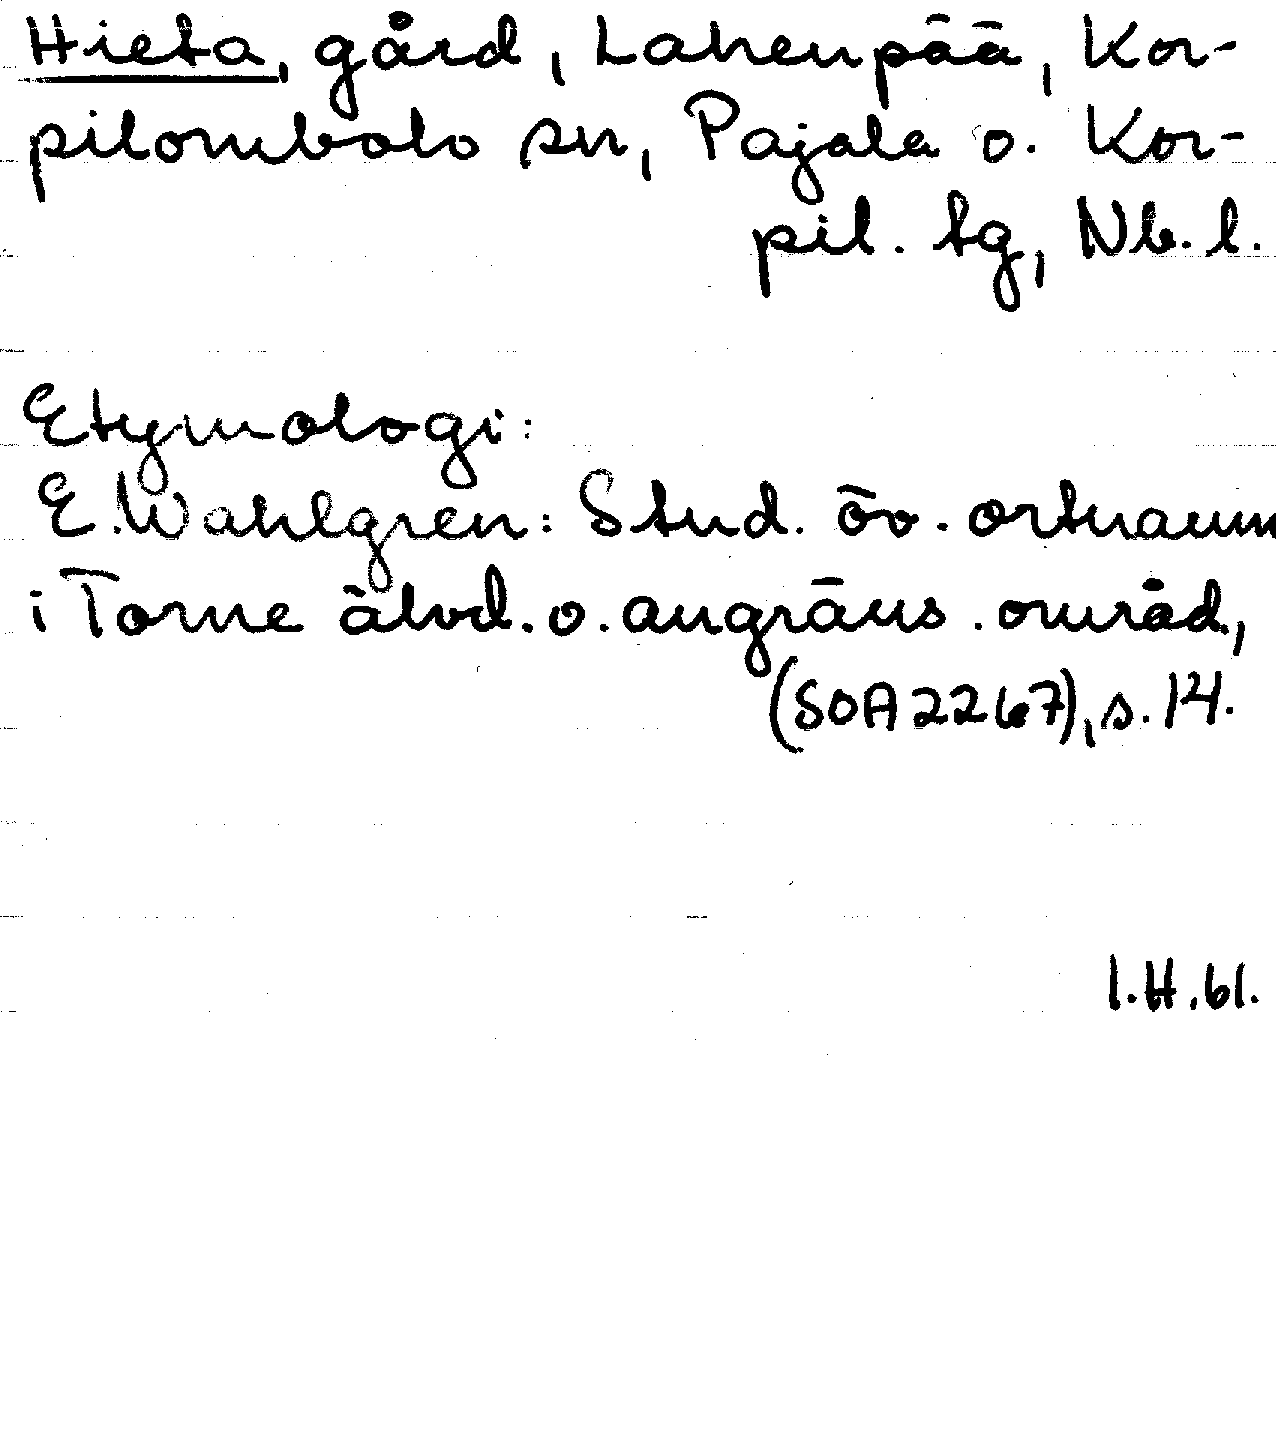 Hieta, gård, Lahenpää, Kor-
pilombolo sn, Pajala o. Kor-
pil. tg, Nb. l.
Etymologi:
E. Wahlgren: Stud. öv. ortnamn
i Torne älvd. o. angräns. områd.,
(SOA 2267), s. 14.
I.H.61.